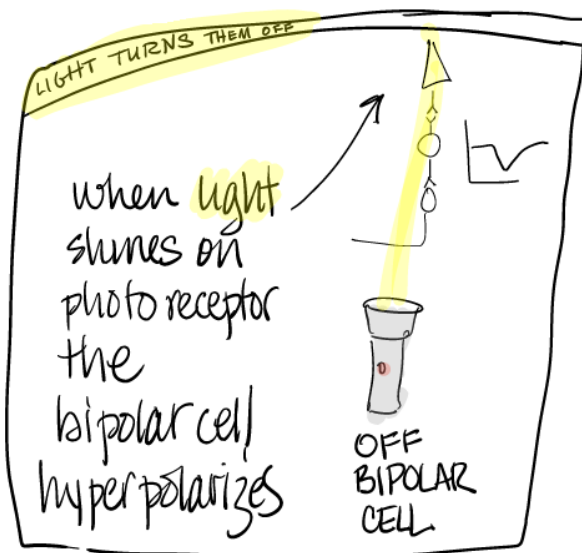 LIGHT TURNS THEM OFF
when light
shines on
photo receptor
the
bipolar cell
hyperpolarizes
OFF
BIPOLAR
CELL